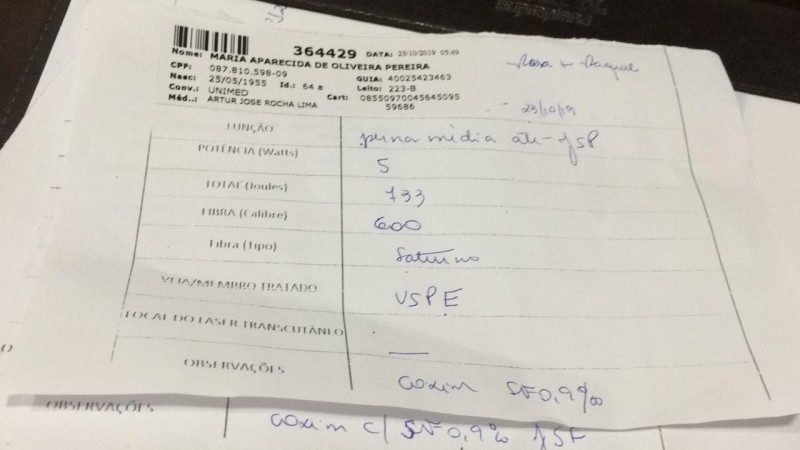 364429 DATA: 23/10/2019 05:49
Nome: MARIA APARECIDA DE OLIVEIRA PEREIRA
CPF: 087.810.598-09 GUIA: 40025423463
Nasc: 25/05/1955 Id.: 64 a Leito: 223-B
Conv.: UNIMED Cart: 08550970045645095
59686
Méd..: ARTUR JOSE ROCHA LIMA
Rosa + Raquel
23/10/19
FUNÇÃO perna média até JSP
POTÊNCIA (Watts) 5
TOTAL (Joules) 733
FIBRA (Calibre) 600
Fibra (Tipo) Saturno
VEIA/MEMBRO TRATADO VSPE
LOCAL DO LASER TRANSCUTÂNEO —
OBSERVAÇÕES coxim SF0,9%
OBSERVAÇÕES coxim c/ SF0,9% JSF